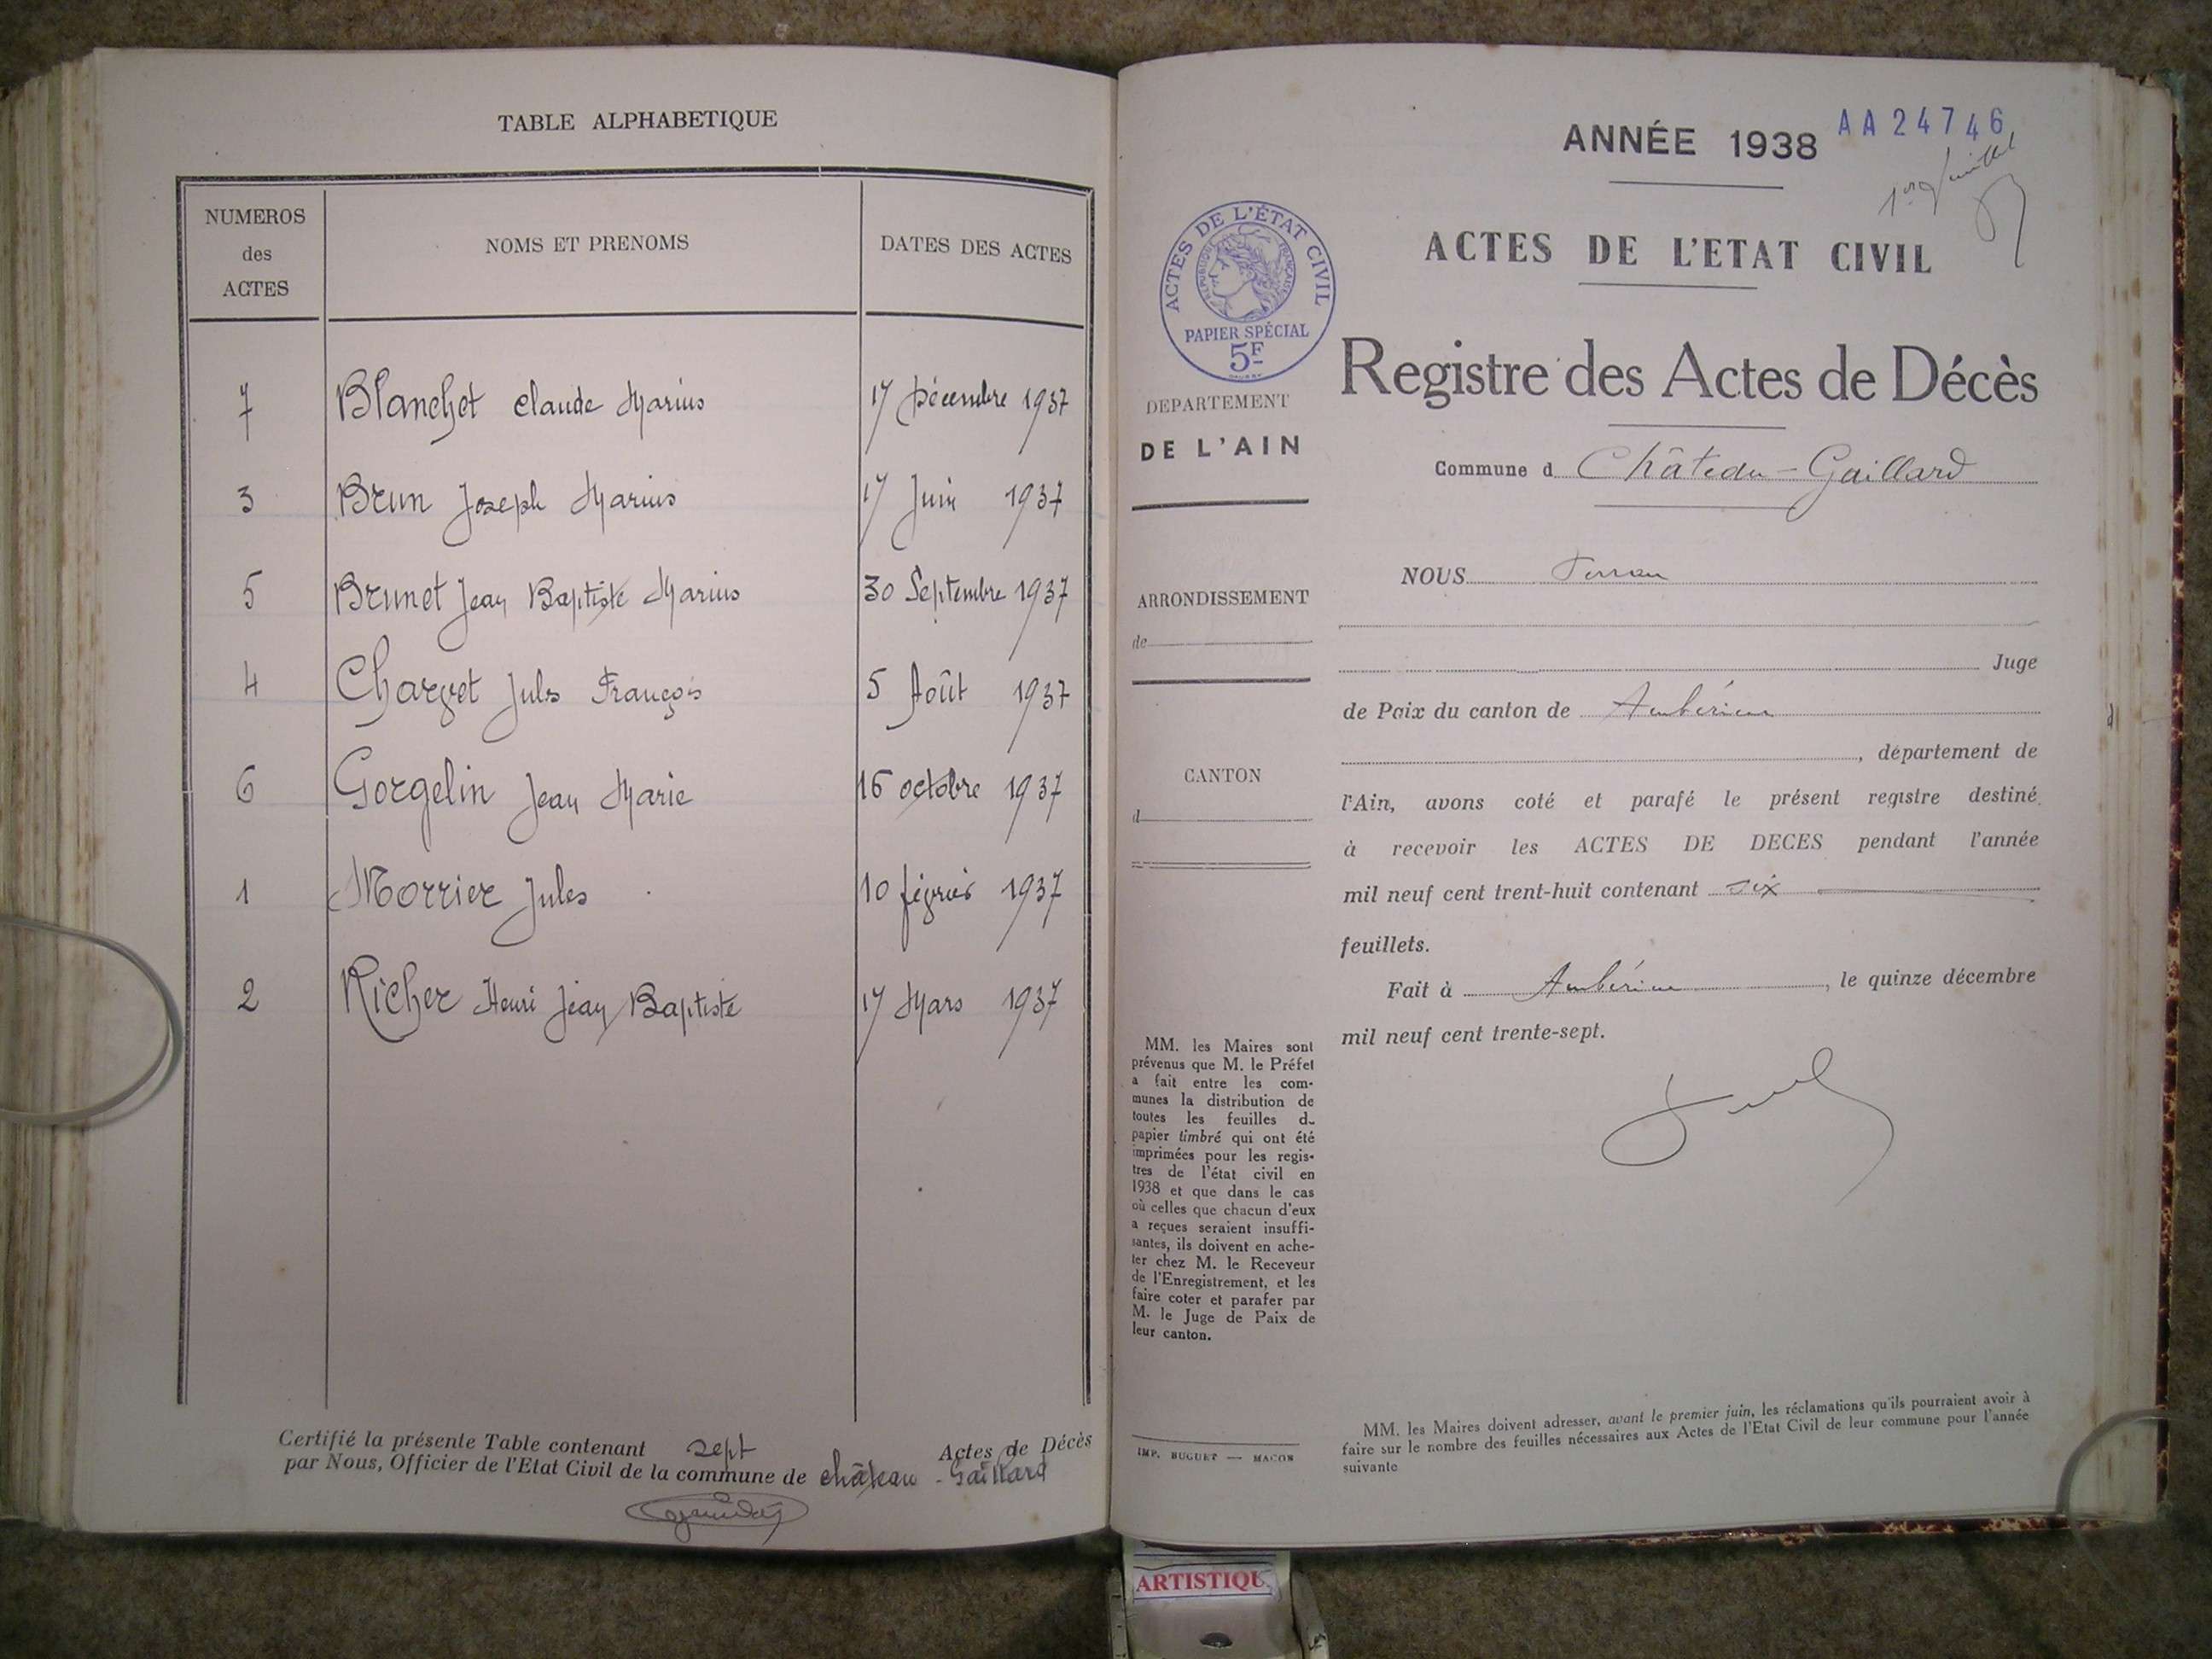 TABLE ALPHABETIQUE
NUMEROS
des
ACTES
NOMS ET PRENOMS
DATES DES ACTES
7 Blanchet Claude Marius 17 Décembre 1937
3 Brun Joseph Marius 17 Juin 1937
5 Brunet Jean Baptiste Marius 30 Septembre 1937
4 Charvet Jules François 5 Août 1937
6 Gorgelin Jean Marie 16 octobre 1937
1 Morrier Jules 10 février 1937
2 Richer Henri Jean Baptiste 17 Mars 1937
Certifié la présente Table contenant sept Actes de Décès
par Nous, Officier de l'Etat Civil de la commune de Château-Gaillard
ANNÉE 1938
AA 24746
1er Juillet
ACTES DE L'ETAT CIVIL
ACTES DE L'ÉTAT CIVIL
RÉPUBLIQUE FRANÇAISE
PAPIER SPÉCIAL
5F
Registre des Actes de Décès
DEPARTEMENT
DE L'AIN
Commune d Château-Gaillard
NOUS
ARRONDISSEMENT
de
Juge
de Paix du canton de Ambérieu
, département de
CANTON
d
l'Ain, avons coté et parafé le présent registre destiné
à recevoir les ACTES DE DECES pendant l'année
mil neuf cent trent-huit contenant six
feuillets.
Fait à Ambérieu, le quinze décembre
mil neuf cent trente-sept.
MM. les Maires sont
prévenus que M. le Préfet
a fait entre les com-
munes la distribution de
toutes les feuilles d
papier timbré qui ont été
imprimées pour les regis-
tres de l'état civil en
1938 et que dans le cas
où celles que chacun d'eux
a reçues seraient insuffi-
santes, ils doivent en ache-
ter chez M. le Receveur
de l'Enregistrement, et les
faire coter et parafer par
M. le Juge de Paix de
leur canton.
IMP. BUGUET — MACON
MM. les Maires doivent adresser, avant le premier juin, les réclamations qu'ils pourraient avoir à
faire sur le nombre des feuilles nécessaires aux Actes de l'Etat Civil de leur commune pour l'année
suivante
ARTISTIQU